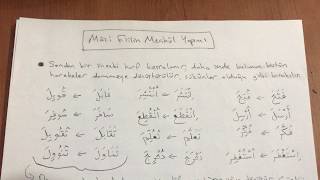 Mazi Fiilin Meçhûl Yapımı
Sondan bir önceki harf kesralanır, daha önde bulunan bütün
harekeler dammeye dönüştürülür, sükûnlar olduğu gibi bırakılır.
فَتَحَ ← فُتِحَ اِنْتَشَرَ ← اُنْتُشِرَ قَابَلَ ← قُوبِلَ
أَرْسَلَ ← أُرْسِلَ اِنْقَطَعَ ← اُنْقُطِعَ سَافَرَ ← سُوفِرَ
فَكَّرَ ← فُكِّرَ تَعَلَّمَ ← تُعُلِّمَ تَقَابَلَ ← تُقُوبِلَ
اِسْتَغْفَرَ ← اُسْتُغْفِرَ دَحْرَجَ ← دُحْرِجَ تَنَاوَلَ ← تُنُووِلَ